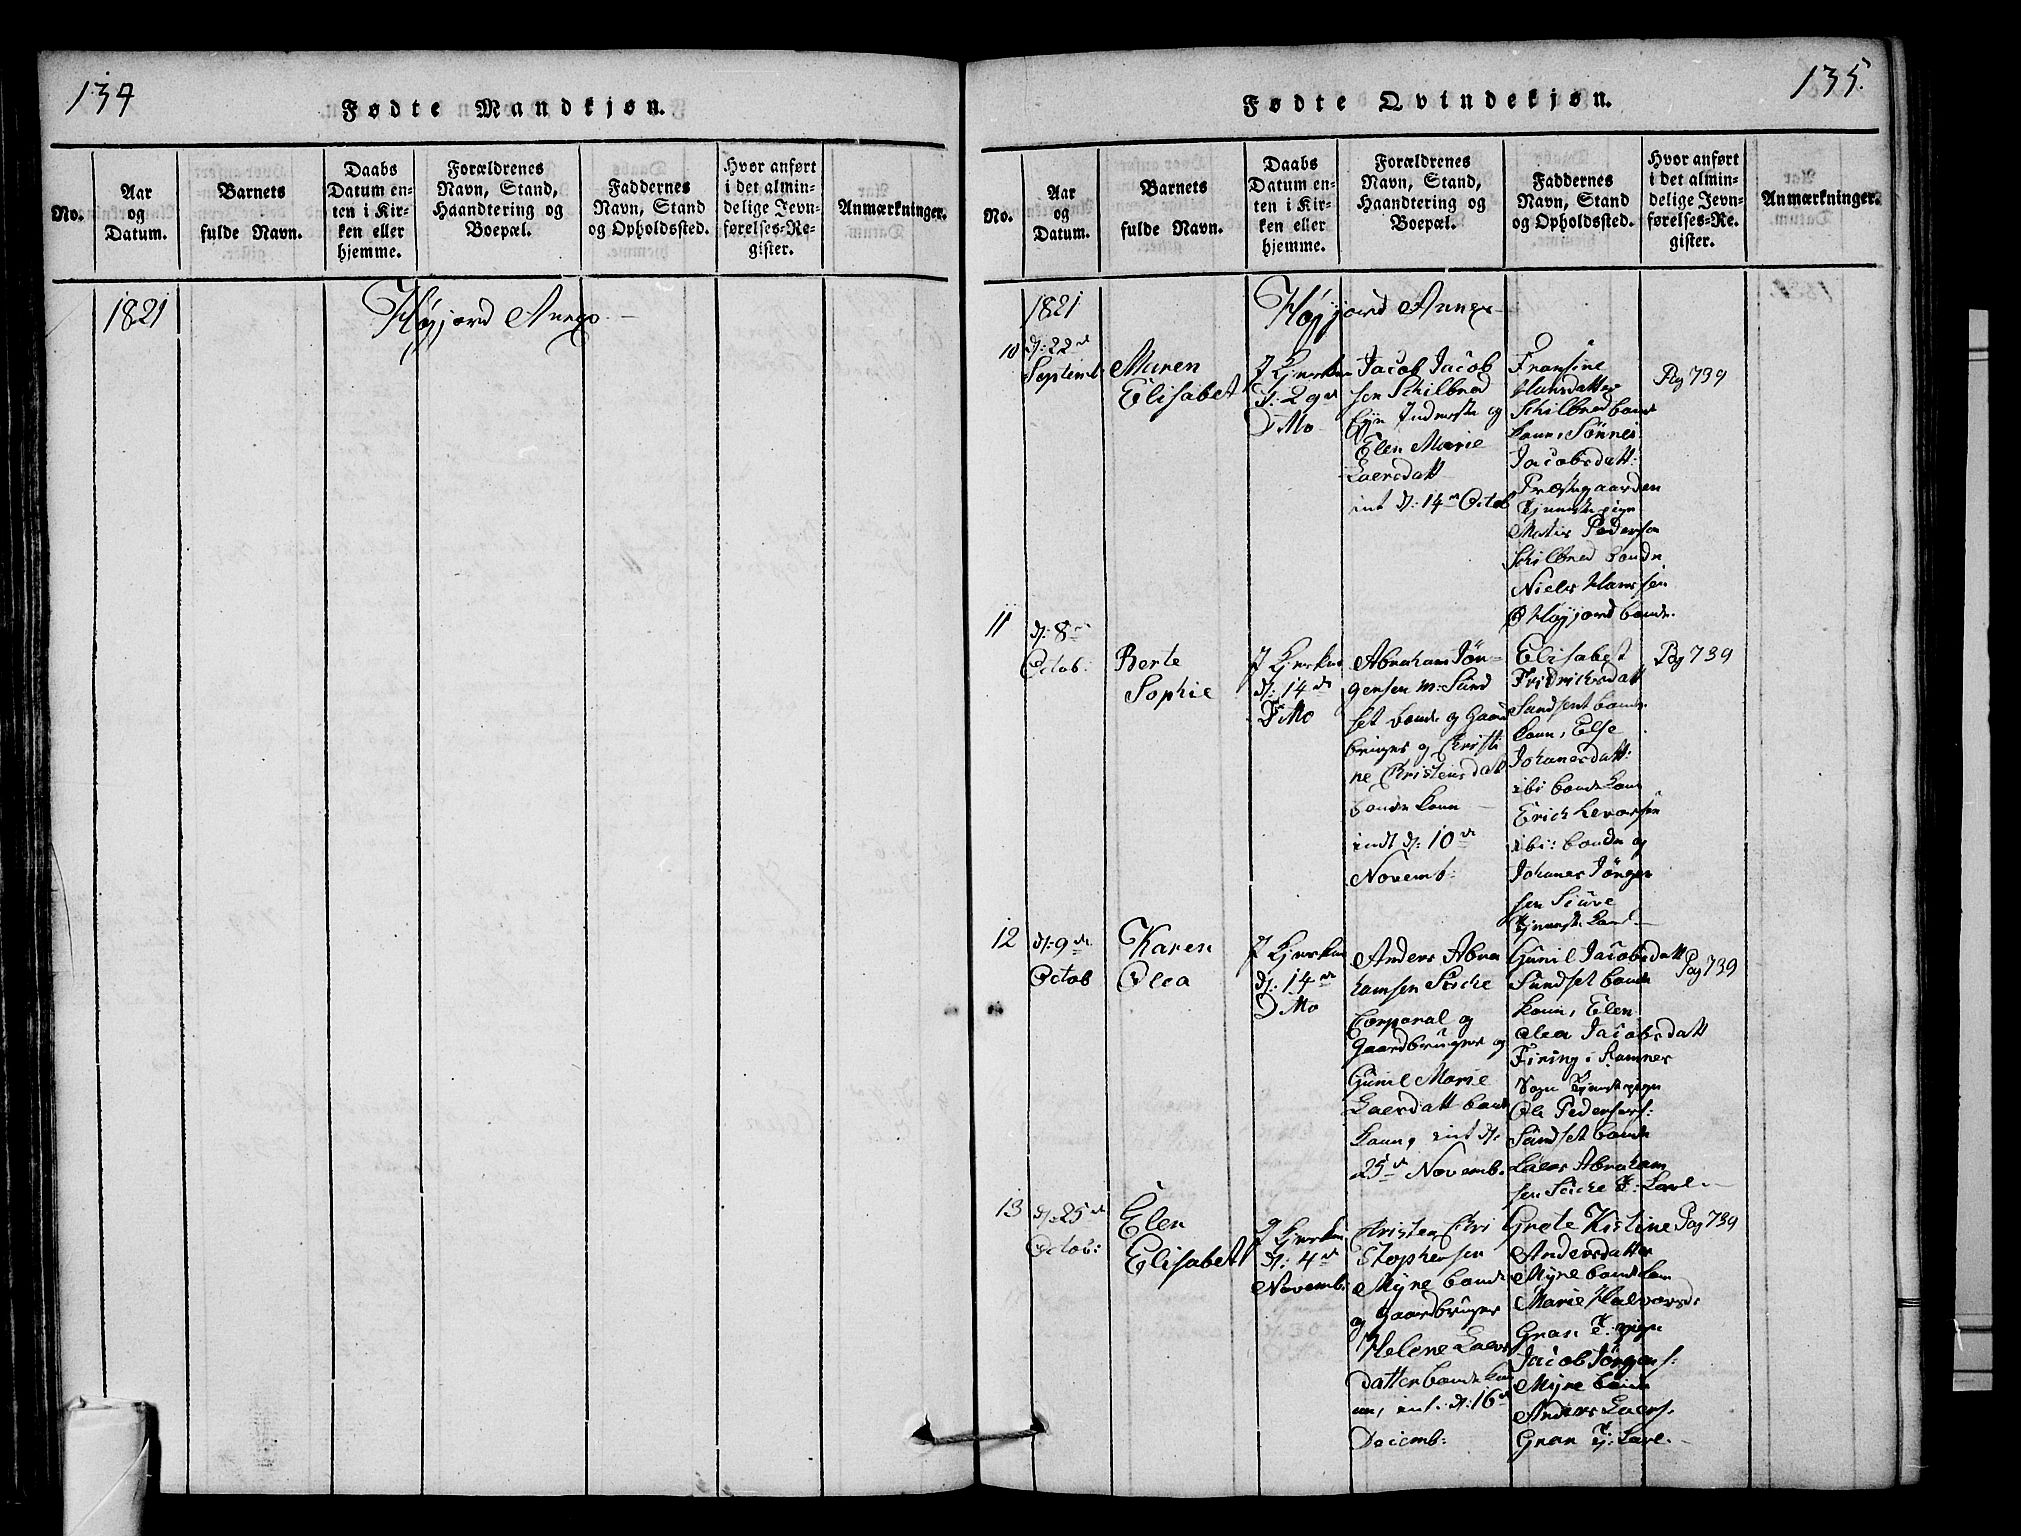 134
Fødte Mandkjøn.
No.
Aar
og
Datum.
Barnets
fulde Navn.
Daabs
Datum en-
ten i Kir-
ken eller
hjemme.
Forældrenes
Navn, Stand,
Haandtering og
Boepæl.
Faddernes
Navn, Stand
og Opholdssted.
Hvor anført
i det almin-
delige Jevn-
førelses-Re-
gister.
Anmærkninger.
1821
Høyjord Annex
135.
Fødte Qvindekjøn.
No.
Aar
og
Datum.
Barnets
fulde Navn.
Daabs
Datum en-
ten i Kir-
ken eller
hjemme.
Forældrenes
Navn, Stand,
Haandtering og
Boepæl.
Faddernes
Navn, Stand
og Opholdssted.
Hvor anført
i det almin-
delige Jevn-
førelses-Re-
gister.
Anmærkninger.
1821
Høyjord Annex
10
d: 22de
Septemb
Maren
Elisabet
I Kjerken
d: 29de
D Mo
Jacob Jacob
sen Schilbred
Inderste og
Elen Marie
Laersdatt
int d: 14de Octob
Fransine
Hansdatter
Schilbred bonde
kone, Sønnes
Jacobsdatt:
Præstegaarden
Tjenestepige
Peders��n
Schilbred bonde
Niels Hanssen
Høyjord bonde.
Pag 739
11
d: 8de
Octob:
Berte
Sophie
I Kjerken
d: 14de
D Mo
Abraham Jön-
gensen m: Sund
set bonde og Gaard
bruger og Christi
ne Christensdatt
bonde kone
indt d: 10de
Novemb:
Elisabet
Fridrichsdatt
Sundset bonde
kone, Else
Johanesdatt:
ibi bondekone
Erich Levorsen
ibi: bonde og
Johanes Jönger
sen
Tjeneste karl
Pag 739
12
d: 9de
Octob
Karen
Olea
I Kjerken
d: 14de
D Mo
Anders Abra
hamsen
Corporal og
Gaardbruger og
Gunil Marie
Laersdatt bonde
kone, int d:
25de Novemb.
Gunil Jacobsdatt
Sundset bonde
kone, Elen
Olea Jacobsdatt
Firing i Ramnes
Sogn Tjenstepige
Ole Peders:
Sundset bonde
Laers Abraham
sen T: Karl
Pag 739
13
d: 25de
Octob:
Elen
Elisabet
I Kjerken
d: 4de
Novemb:
Kristen Chri
stophersen
Myre bonde
og Gaardbruger
Helene Laers
datter bonde kone
int: d: 16de
Decemb:
Grete Kistine
Andersdatter
Myre bondekone
Marie Halvorsd:
Gran T: pige
Jacob Jörgens:
Myre bonde
Anders Laers:
Gran Tj: Karl
Pag 739